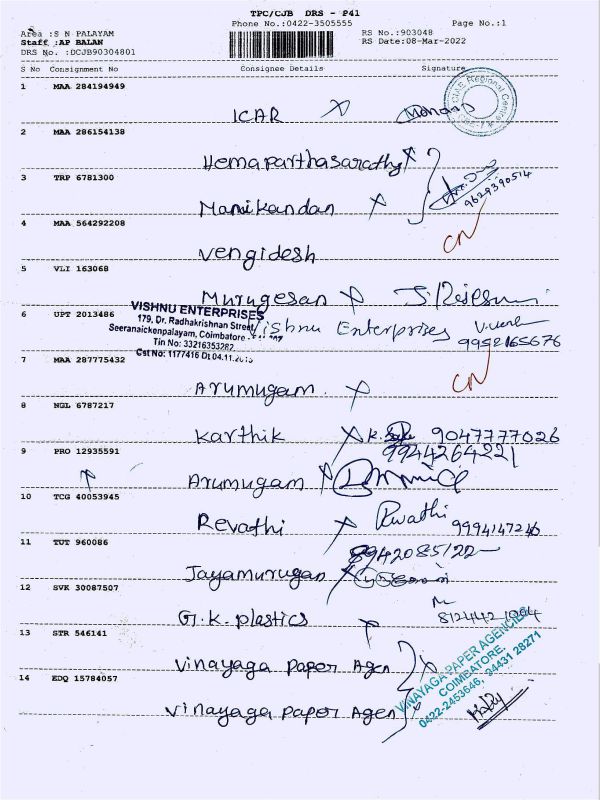 TPC/CJB DRS - P41
Phone No.:0422-3505555 Page No.:1
Area :S N PALAYAM RS No.:903048
Staff :AP BALAN RS Date:08-Mar-2022
DRS No. :DCJB90304801
S No Consignment No Consignee Details Signature
1 MAA 284194949
ICAR Mohan
Regional Centre
2 MAA 286154138
Hemaparthasarathy
3 TRP 6781300
9629390514
Manikandan
4 MAA 564292208
CN
Vengidesh
5 VLI 163068
Murugesan
6 UPT 2013486
VISHNU ENTERPRISES
179, Dr. Radhakrishnan Street
Seeranaickenpalayam, Coimbatore -
Tin No: 33216353282
Cst No: 1177416 Dt.04.11.
Vishnu Enterprises
9952165676
7 MAA 287775432
CN
Arumugam
8 NGL 6787217
Karthik 9047777026
9944264221
9 PRO 12935591
Arumugam
10 TCG 40053945
Revathi Revathi 9994147246
11 TUT 960086
8942085122
Jayamurugan
12 SVK 30087507
G.K. plastics
13 STR 546141
Vinayaga Paper Agen
14 EDQ 15784057
Vinayaga Paper Agen
VINAYAGA PAPER AGENCIES
COIMBATORE.
0422-2453646, 94431 28271